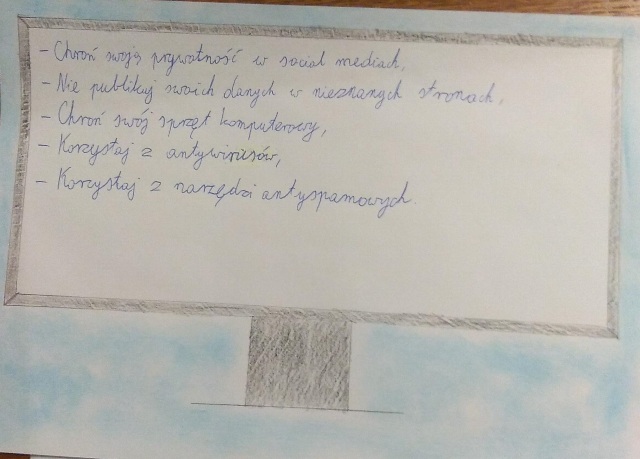 - Chroń swoją prywatność w social mediach,
- Nie publikuj swoich danych w nieznanych stronach,
- Chroń swój sprzęt komputerowy,
- Korzystaj z antywirusów,
- Korzystaj z narzędzi antyspamowych.